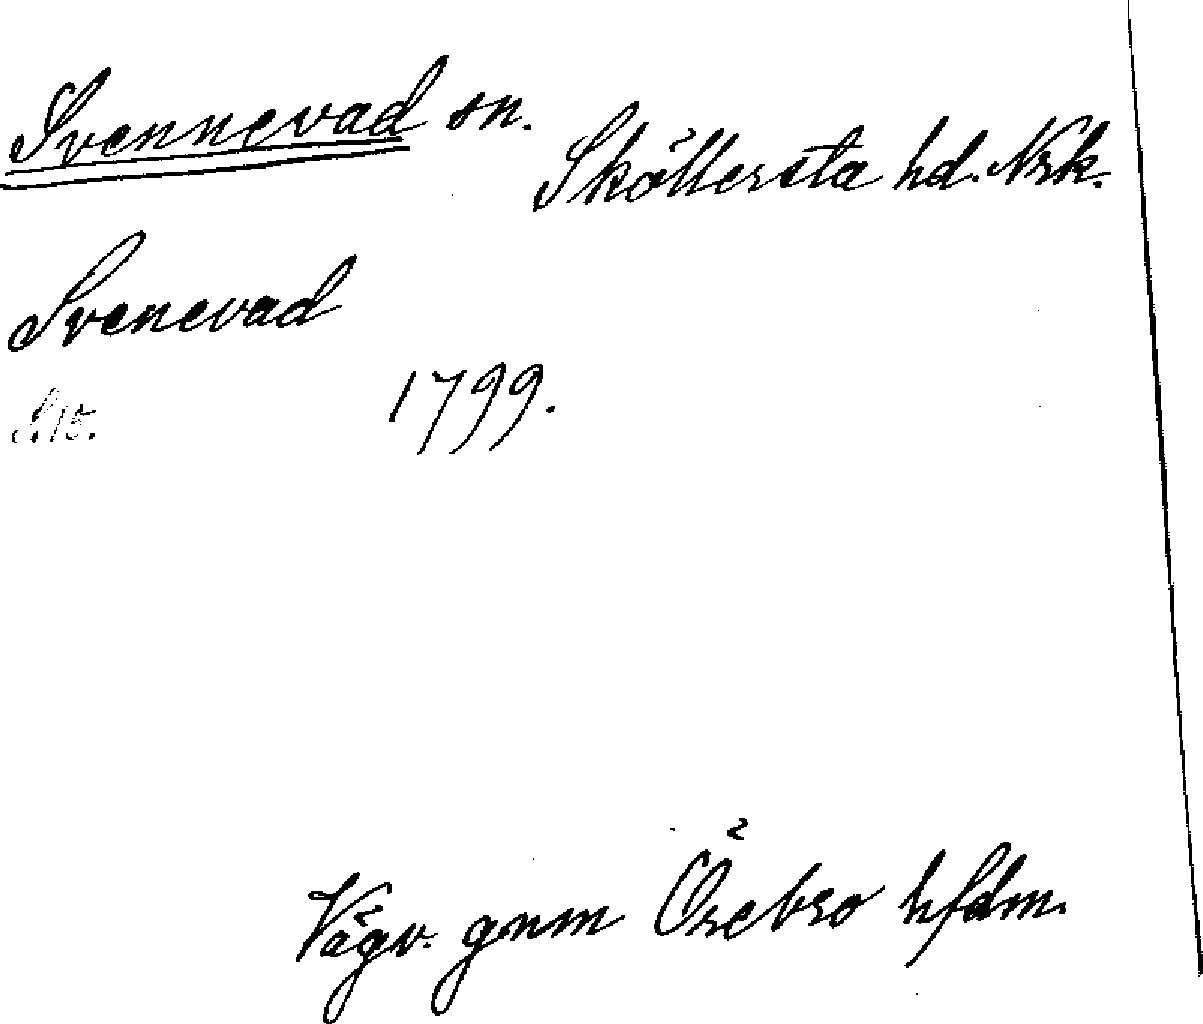 Svennevad sn.
Sköllersta hd. Nrk.
Svenevad
S. 15.
1799.
Vägv. gnm Örebro hfdm.